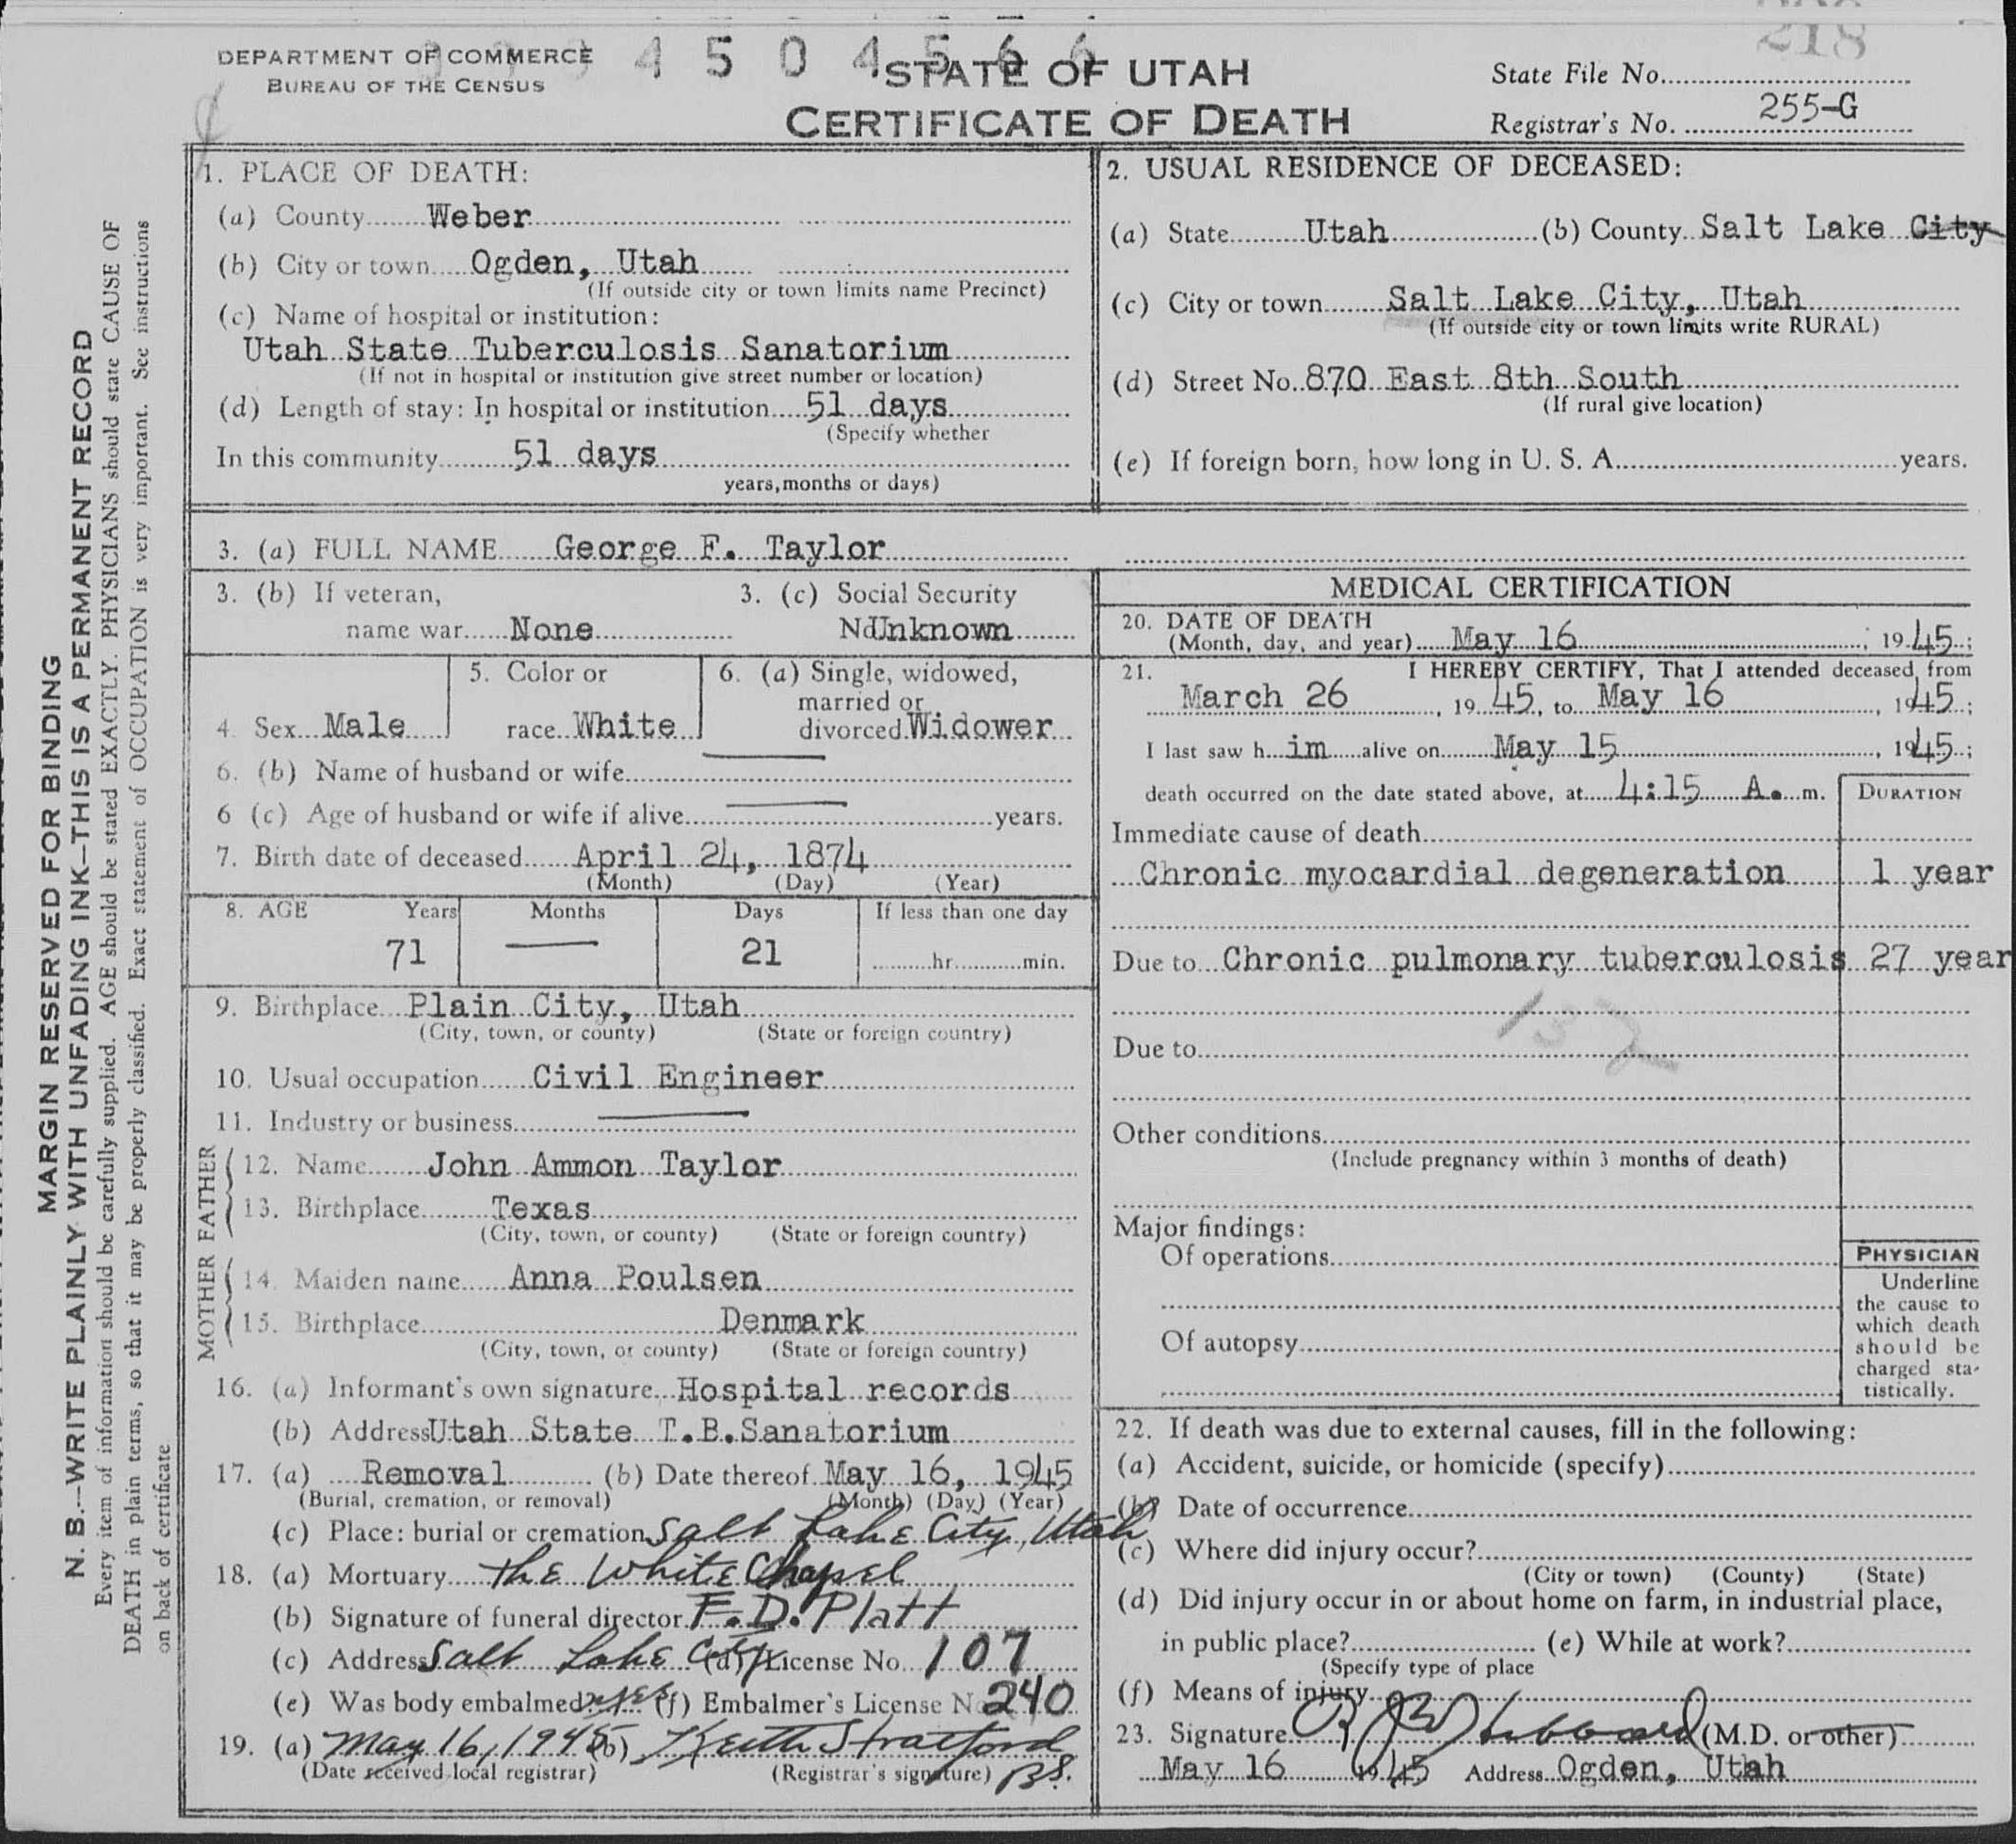 218
4 5 0 4 5 6 6
DEPARTMENT OF COMMERCE
BUREAU OF THE CENSUS
STATE OF UTAH
CERTIFICATE OF DEATH
State File No.
Registrar's No. 255-G
MARGIN RESERVED FOR BINDING
N. B.—WRITE PLAINLY WITH UNFADING INK—THIS IS A PERMANENT RECORD
Every item of information should be carefully supplied. AGE should be stated EXACTLY. PHYSICIANS should state CAUSE OF
DEATH in plain terms, so that it may be properly classified. Exact statement of OCCUPATION is very important. See instructions
on back of certificate
1. PLACE OF DEATH:
(a) County Weber
(b) City or town Ogden, Utah
(If outside city or town limits name Precinct)
(c) Name of hospital or institution:
Utah State Tuberculosis Sanatorium
(If not in hospital or institution give street number or location)
(d) Length of stay: In hospital or institution 51 days
(Specify whether
In this community 51 days
years, months or days)
2. USUAL RESIDENCE OF DECEASED:
(a) State Utah (b) County Salt Lake City
(c) City or town Salt Lake City, Utah
(If outside city or town limits write RURAL)
(d) Street No. 870 East 8th South
(If rural give location)
(e) If foreign born, how long in U. S. A. years.
3. (a) FULL NAME George F. Taylor
3. (b) If veteran,
name war None
3. (c) Social Security
No Unknown
4. Sex Male
5. Color or
race White
6. (a) Single, widowed,
married or
divorced Widower
6. (b) Name of husband or wife
6 (c) Age of husband or wife if alive years.
7. Birth date of deceased April 24, 1874
(Month) (Day) (Year)
8. AGE Years Months Days If less than one day
71 — 21 hr. min.
9. Birthplace Plain City, Utah
(City, town, or county) (State or foreign country)
10. Usual occupation Civil Engineer
11. Industry or business
FATHER
12. Name John Ammon Taylor
13. Birthplace Texas
(City, town, or county) (State or foreign country)
MOTHER
14. Maiden name Anna Poulsen
15. Birthplace Denmark
(City, town, or county) (State or foreign country)
16. (a) Informant's own signature Hospital records
(b) Address Utah State T.B.Sanatorium
17. (a) Removal (b) Date thereof May 16, 1945
(Burial, cremation, or removal) (Month) (Day) (Year)
(c) Place: burial or cremation Salt Lake City, Utah
18. (a) Mortuary The White Chapel
(b) Signature of funeral director F. D. Platt
(c) Address Salt Lake City (d) License No. 107
(e) Was body embalmed? yes (f) Embalmer's License No 240
19. (a) May 16, 1945 (b) Keith Stratford
(Date received local registrar) (Registrar's signature) BS.
MEDICAL CERTIFICATION
20. DATE OF DEATH
(Month, day, and year) May 16, 1945;
21. I HEREBY CERTIFY, That I attended deceased from
March 26, 1945, to May 16, 1945;
I last saw him alive on May 15, 1945;
death occurred on the date stated above, at 4:15 A. m.
DURATION
Immediate cause of death
Chronic myocardial degeneration 1 year
Due to Chronic pulmonary tuberculosis 27 year
132
Due to
Other conditions
(Include pregnancy within 3 months of death)
Major findings:
Of operations
Of autopsy
PHYSICIAN
Underline
the cause to
which death
should be
charged sta-
tistically.
22. If death was due to external causes, fill in the following:
(a) Accident, suicide, or homicide (specify)
(b) Date of occurrence
(c) Where did injury occur?
(City or town) (County) (State)
(d) Did injury occur in or about home on farm, in industrial place,
in public place? (e) While at work?
(Specify type of place
(f) Means of injury
23. Signature (M.D. or other)
May 16 1945 Address Ogden, Utah